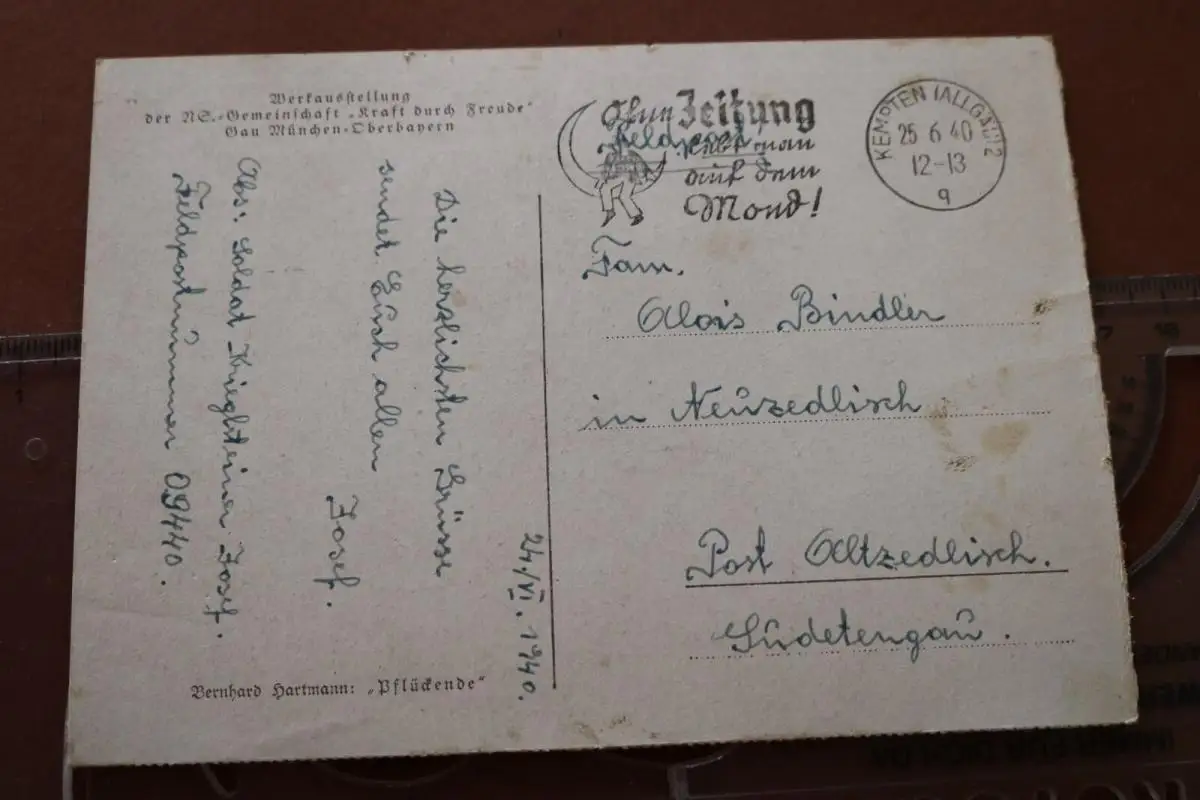 Werkausstellung
der NS.-Gemeinschaft „Kraft durch Freude“
Gau München-Oberbayern
24./VI. 1940.
Die herzlichsten Grüsse
sendet Euch allen
Josef.
Abs: Soldat Krieglsteiner Josef.
Feldpostnummer 09440.
Bernhard Hartmann: „Pflückende“
Ohne Zeitung
lebt man
auf dem
Mond!
Feldpost
KEMPTEN (ALLGÄU) 2
25.6.40
12-13
q
Fam.
Alois Bindler
in Neuzedlisch
Post Altzedlisch.
Südetengau.